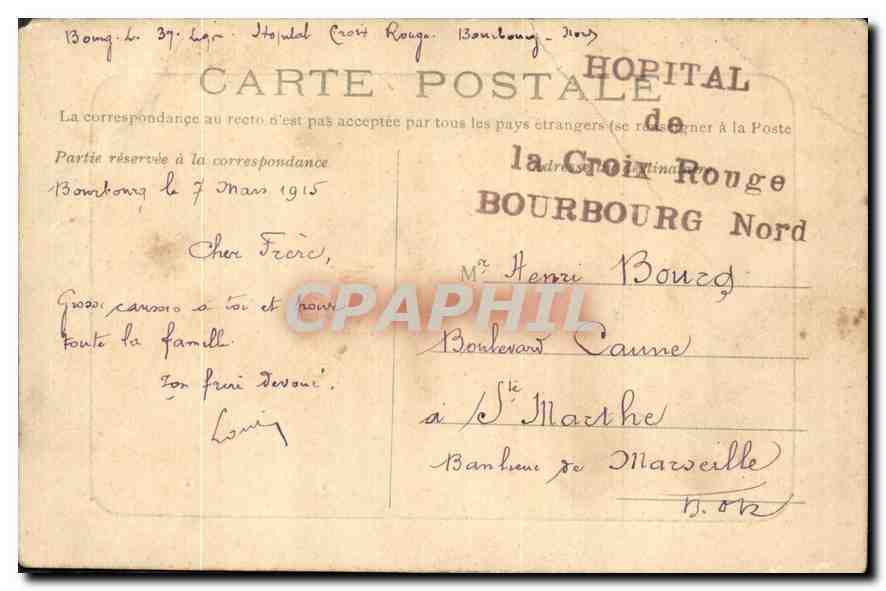 Bourg. L. 37. Lign. Hopital Croix Rouge. Bourbourg - Nord
CARTE POSTALE
La correspondance au recto n'est pas acceptée par tous les pays étrangers (se renseigner à la Poste
HOPITAL
de
la Croix Rouge
BOURBOURG Nord
Partie réservée à la correspondance
Adresse du destinataire
Bourbourg le 7 Mars 1915
Cher Frère,
Grosse caresses a toi et pour
toute la famille.
Ton frère devoué.
Louis
Mr Henri Bourg
Boulevard
à Ste Marthe
Banlieue de Marseille
CPAPHIL